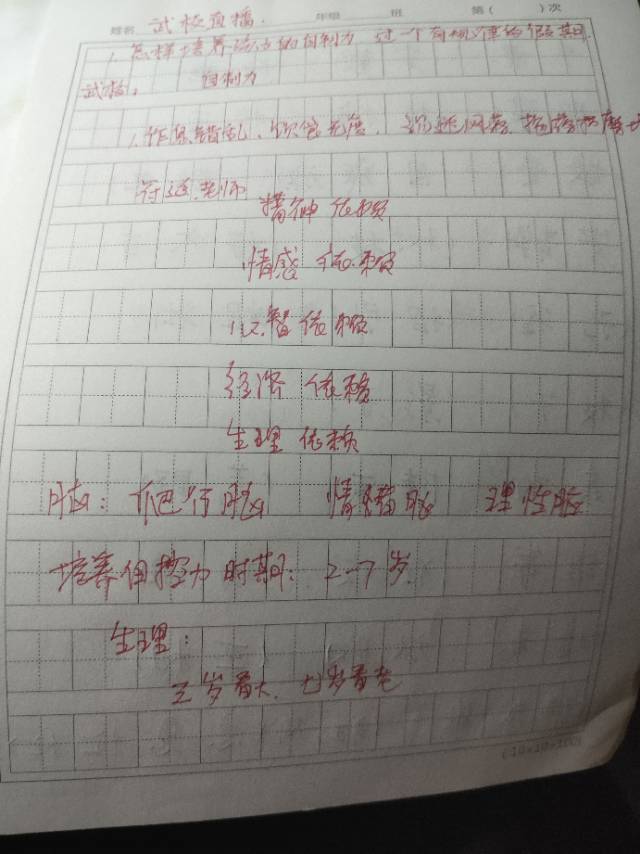 姓名 试校直播. 年级 班 第( )次
1.怎样培养孩子的自制力 过一个有规律的假期.
试校: 自制力
1.作息错乱、饮食无度、沉迷网络、
老师
精神依赖
情感依赖
心智依赖
经济依赖
生理依赖
脑: 爬行脑 情绪脑 理性脑
培养自控力时期: 2-7岁.
生理:
三岁看大、七岁看老